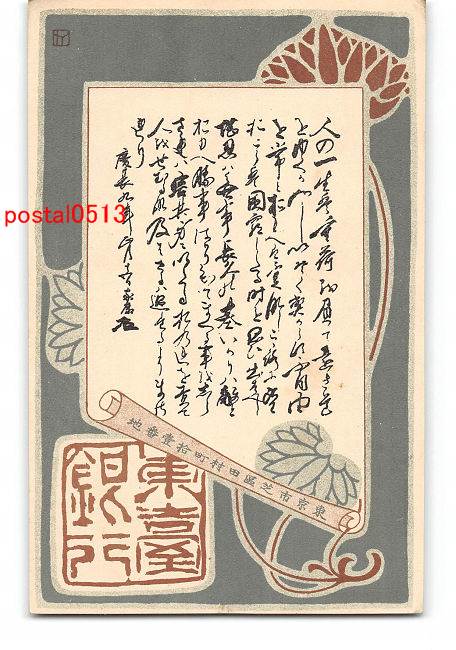 人の一生は重荷を負て遠き道
をゆくが如しいそぐべからず不自由
を常とおもへば不足なしこころに望
おこらば困窮したる時を思ひ出すべし
堪忍は無事長久の基いかりは敵と
おもへ勝事ばかり知てまくる事をしら
ざれば害其身にいたるおのれを責て
人をせむるな及ばざるは過たるよりま
されり
慶長九年 家康
東京市芝區田村町拾壹番地
銀行
postal0513